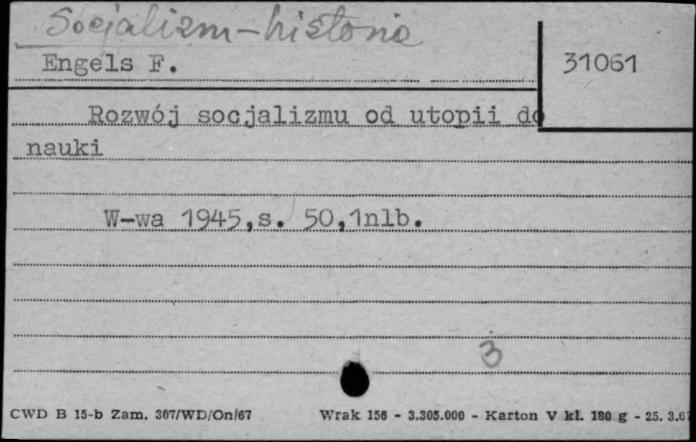 Socjalizm - historia
Engels F.
31061
Rozwój socjalizmu od utopii do
nauki
W-wa 1945,s. 50,1nlb.
3
CWD B 15-b Zam. 307/WD/On/67 Wrak 156 - 3.305.000 - Karton V kl. 180 g - 25. 3.67